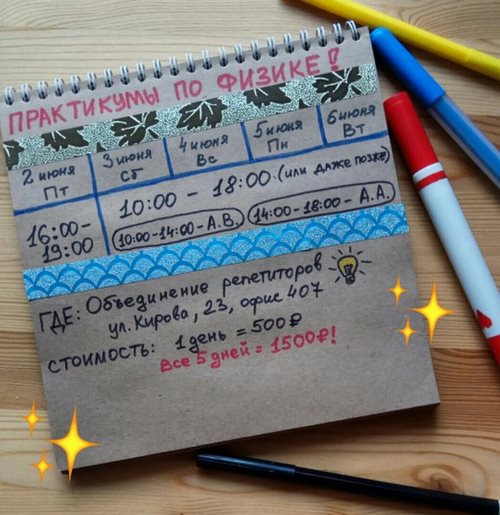 ПРАКТИКУМЫ ПО ФИЗИКЕ!
2 июня 3 июня 4 июня 5 июня 6 июня
Пт Сб Вс Пн Вт
16:00-19:00
10:00 - 18:00 (или даже позже)
10:00-14:00 - А.В. 14:00-18:00 - А.А.
ГДЕ: Объединение репетиторов
ул. Кирова, 23, офис 407
СТОИМОСТЬ: 1 день = 500₽
Все 5 дней = 1500₽!